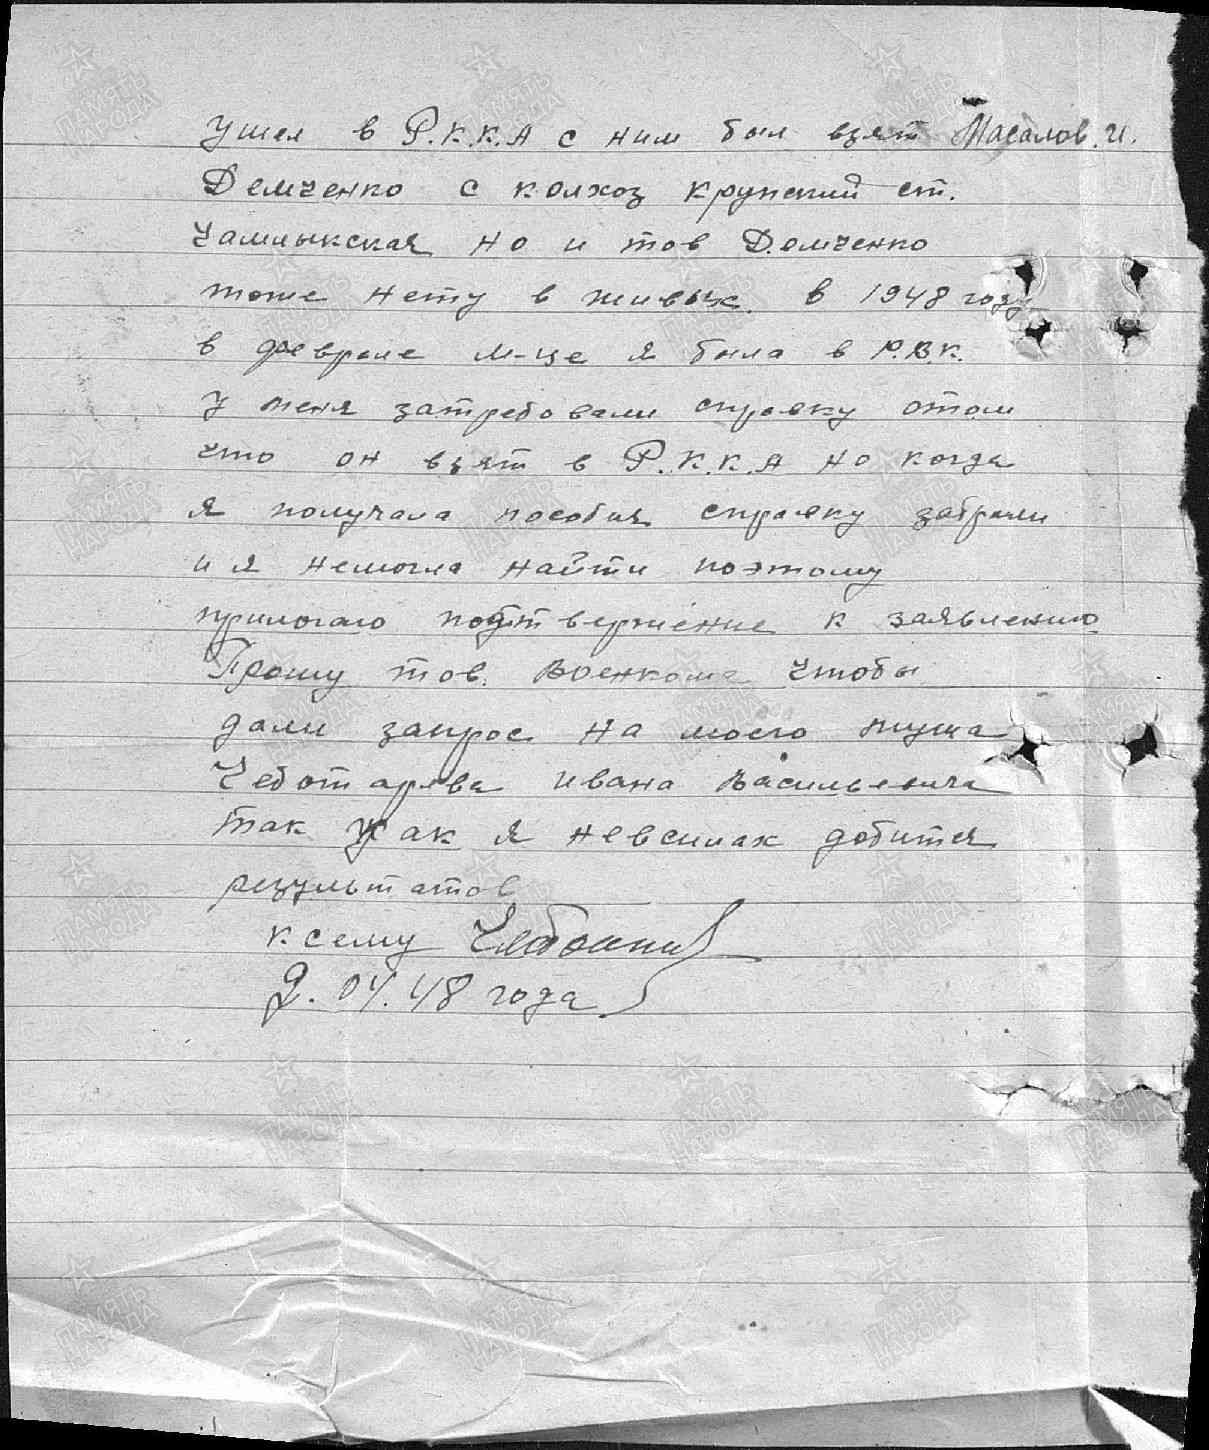 Ушел в Р.К.К.А с ним был взят Масалов.И.
Демченко с колхоз крупский ст.
Чамлыкская но и тов Демченко
тоже нету в живых. в 1948 году
в феврале м-це я была в Р.В.К.
у меня затребовали справку отом
что он взят в Р.К.К.А но когда
я получала пособия справку забрали
и я немогла найти поэтому
прилогаю подтвержение к заявлению
Прошу тов. Военкома чтобы
дали запрос на моего мужа
Чеботарева Ивана Васильевича
так как я невсилах добится
результатов
к сему
2.04.48 года